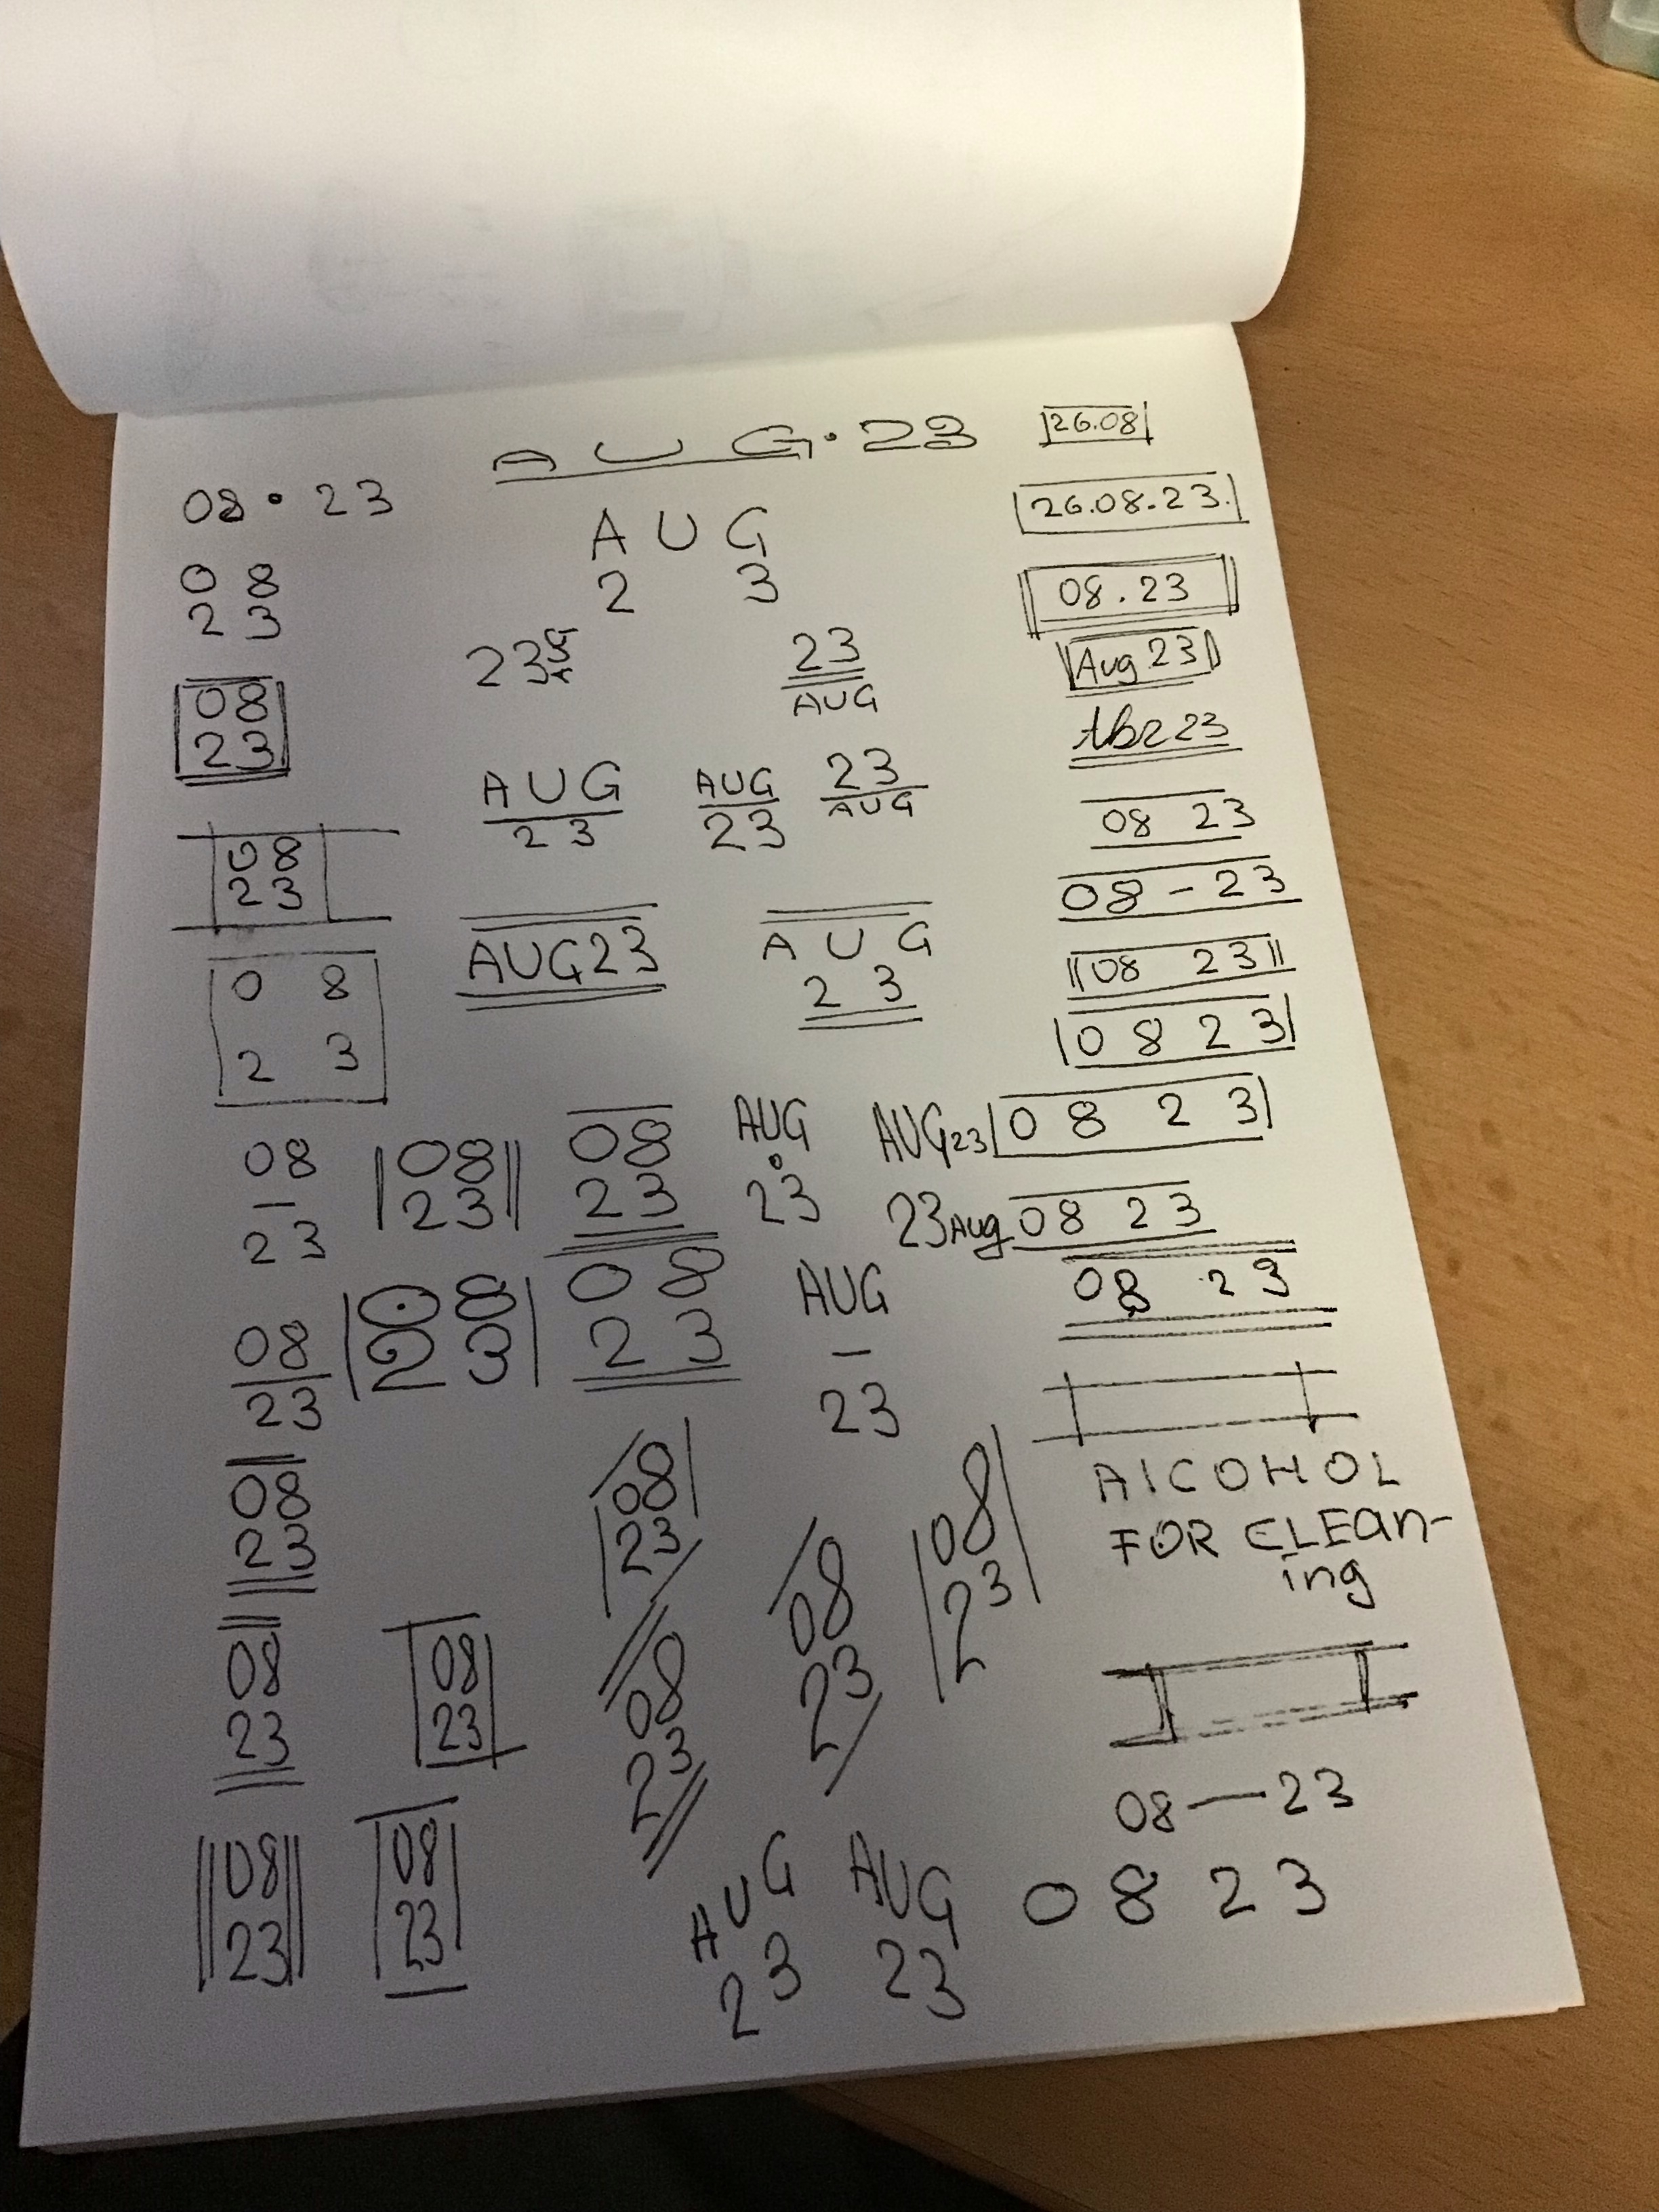 AUG.23
26.08
08.23
26.08.23.
AUG
2 3
08
23
08.23
23
23
AUG
Aug 23
08
23
AUG
23
AUG
23
23
AUG
08 23
08
23
08-23
AUG23
AUG
23
08 23
0 8
2 3
0 8 2 3
08
-
23
08
23
08
23
AUG
.
23
AUG23
0 8 2 3
23Aug
08 23
08
23
08
23
08
23
AUG
-
23
08 23
08
23
08
23
08
23
08
23
AlCOHOL
FOR CLEan-
ing
08
23
08
23
08
23
08—23
08
23
08
23
AUG
23
AUG
23
0 8 2 3